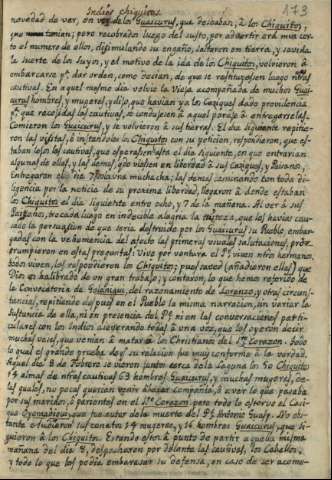 Indios chiquitos
143
novedad de ver, en vez de los Guaicurus, que deseaban, à los Chiquitos,
que temian; pero recobrados luego del susto, por advertir era mui cor-
to el numero de ellos, disimulando su engaño, saltaron en tierra, y savida
la suerte de los suyos, y el motivo de la ida de los Chiquitos, volvieron à
embarcarse p.ª dar orden, como decian, de que se restituyesen luego
cautivos. En aquel mesmo dia volviò la Vieja acompañada de muchos Guai-
curus hombres, y mugeres, y dijo, que havian ya los Caziques dado providencia
p.ª que recojidas las cautivas, se condujesen à aquel parage à entregarselas.
Comieron los Guaicurus, y se volvieron à sus tierras. El dia siguiente repitie-
ron las visitas, è instandoles los Chiquitos con su peticion, respondieron, que es-
taban lejos las cautivas, que esperasen hasta el dia siguiente, en que entregarian
algunas de ellas, y las demas, que viesen en libertad à sus Caziques, y Paisanos,
Entregaron una muchacha; las demas caminando con toda di-
ligencia por la noticia de su proxima libertad, llegaron à donde estaban
los Chiquitos el dia siguiente entre ocho, y 9 de la mañana. Al ver à sus
Paysanos, trocada luego en indecible alegria la tristeza, que les havia cau-
sado la persuasion de que seria destruido por los Guaicurus su Pueblo, embar-
gadas con la vehemencia del afecto las primeras vivas salutaciones, pro-
rrumpieron en esta pregunta: Vive por ventura el P.e viven ntros hermanos?
todos viven, les respondieron los Chiquitos; pues savèd (añadieron ellas) que
Dios os ha librado de un gran trabajo; y contaron, lo que hemos referido de
la Convocatoria de Golanigi, del razonamiento de Lorenzo, y otras circuns-
tancias, repitiendo despues en el Pueblo la misma narracion, sin variar la
substancia de ella, ni en presencia del P.e ni en las conversaciones parti-
culares con los Indios aseverando todas à una voz, que los oyeron decir
muchas veces, que venian à matar à los Christianos del S.mo Corazon. Todo
lo qual es grande prueba de q.e su relacion fue muy conforme à la verdad.
Aquel dia 8 de Febrero se vieron juntos cerca de la Laguna los 60 Chiquitos
almas de nrtas cautivas 63 hombres Guaicurus, y muchas mugeres, de-
las quales, no pocas quisieron venir à ver lo que pasaba
por sus maridos, ò parientes en el S.mo Corazon: pero todo lo estorvò el Cazi-
que Oyomadigui, que fue autor de la muerte del P.e Antonio Guasp. No obs-
tante acudieron sus conatos 14 mugeres, y 16 hombres Guaicurus, que si-
guieron à los Chiquitos. Estando estos à punto de partir aquella misma
mañana del dia 8, despacharon por delante las cautivas, los Caballos,
y todo lo que les podia embarazar su defensa, en caso de ser acome-